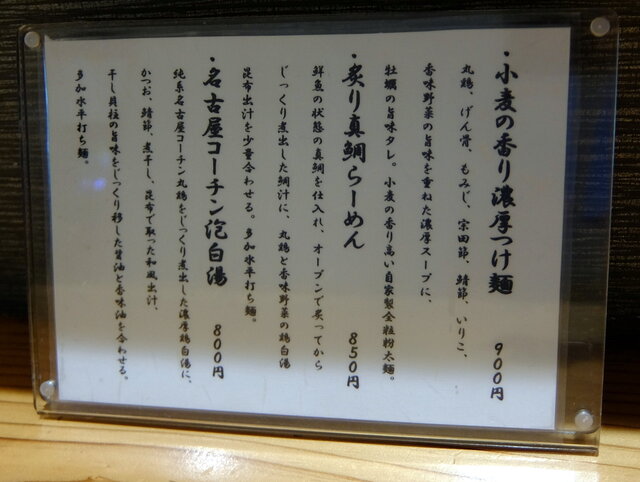 ・小麦の香り濃厚つけ麺 900円
丸鶏、げん骨、もみじ、宗田節、鯖節、いりこ、
香味野菜の旨味を重ねた濃厚スープに、
牡蠣の旨味タレ。小麦の香り高い自家製全粒粉太麺。
・炙り真鯛らーめん 850円
鮮魚の状態の真鯛を仕入れ、オーブンで炙ってから
じっくり煮出した鯛汁に、丸鶏と香味野菜の鶏白湯
昆布出汁を少量合わせる。多加水平打ち麺。
・名古屋コーチン泡白湯 800円
純系名古屋コーチン丸鶏をじっくり煮出した濃厚鶏白湯に、
かつお、鯖節、煮干し、昆布で取った和風出汁、
干し貝柱の旨味をじっくり移した醤油と香味油を合わせる。
多加水平打ち麺。